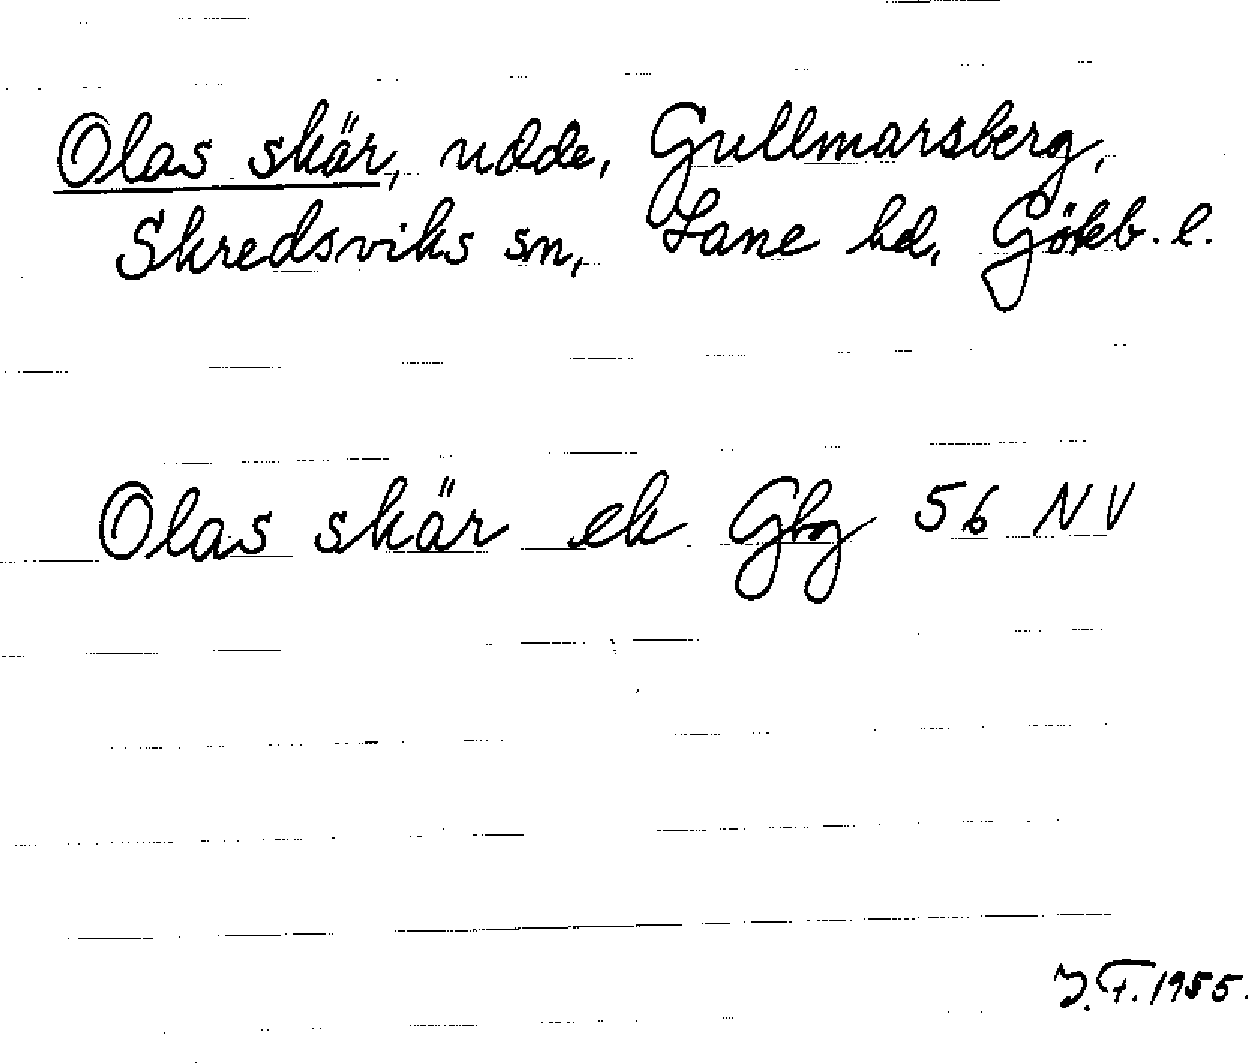 Olas skär, udde, Gullmarsberg,
Skredsviks sn, Lane hd, Göteb. l.
Olas skär ek Gbg 56 NV
J.F. 1955.